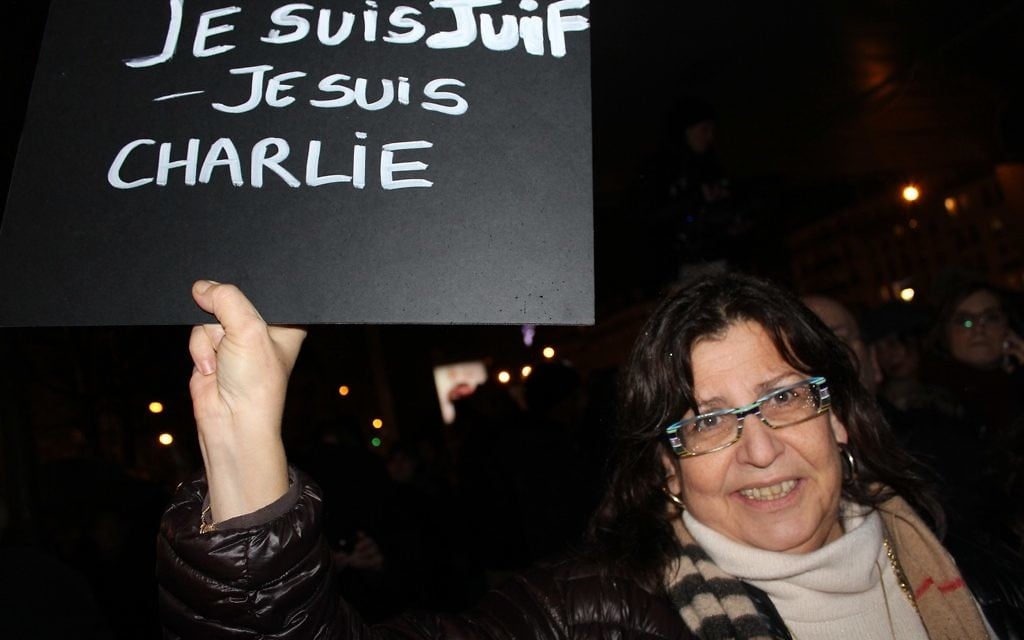 JE SUIS JUiF
- JE SUiS
CHARLiE